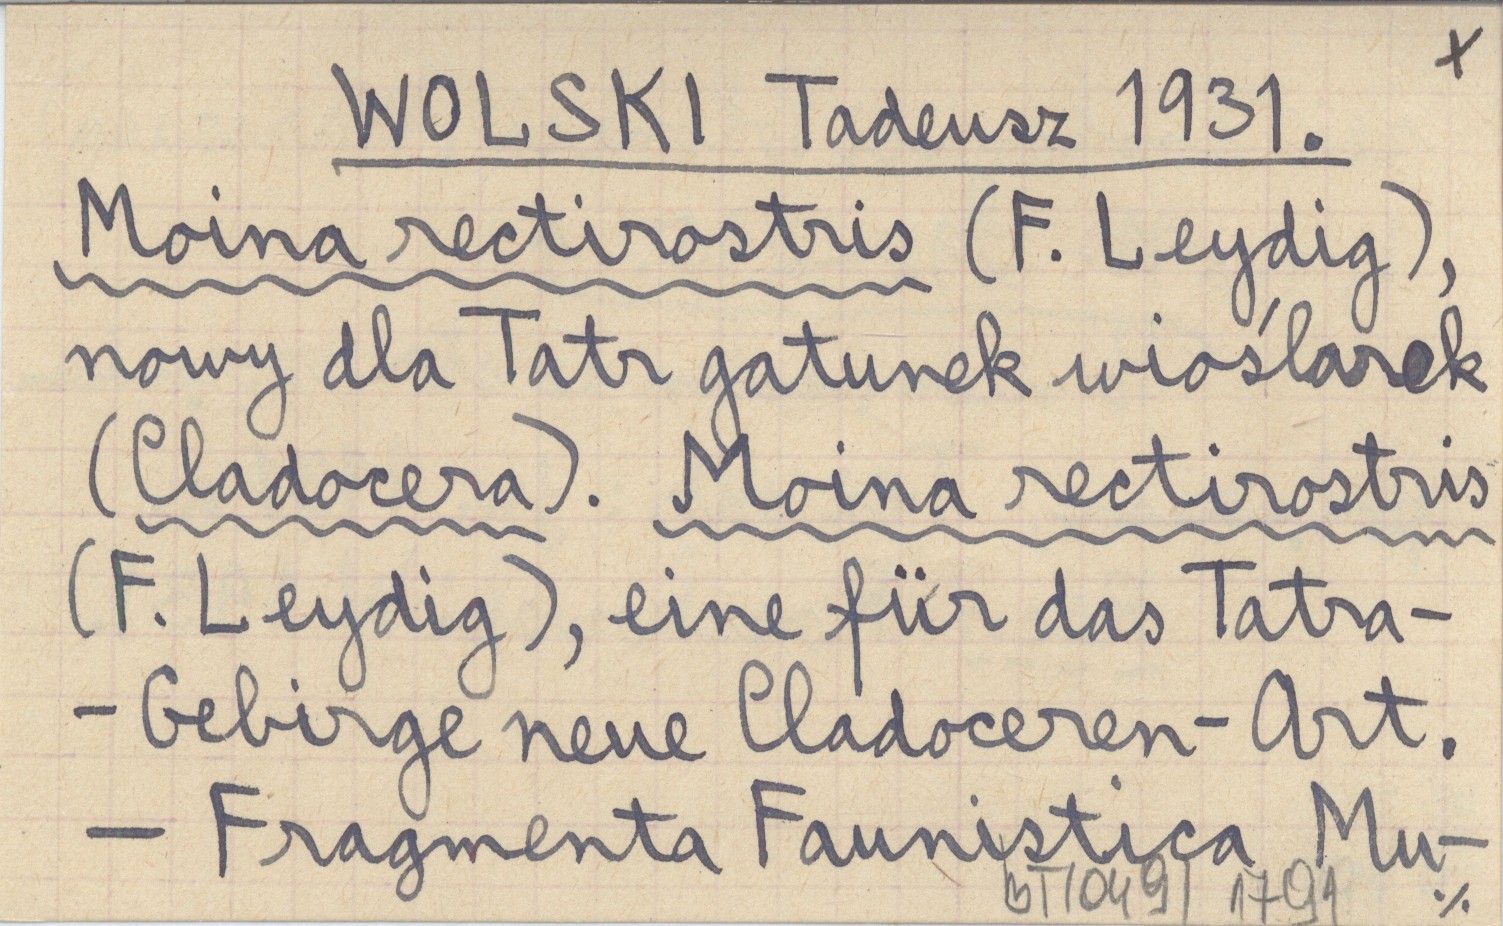 x
WOLSKI Tadeusz 1931.
Moina rectirostris (F. Leydig),
nowy dla Tatr gatunek wioślarek
(Cladocera). Moina rectirostris
(F. Leydig), eine für das Tatra-
-Gebirge neue Cladoceren-Art.
— Fragmenta Faunistica Mu-
1791 ./.